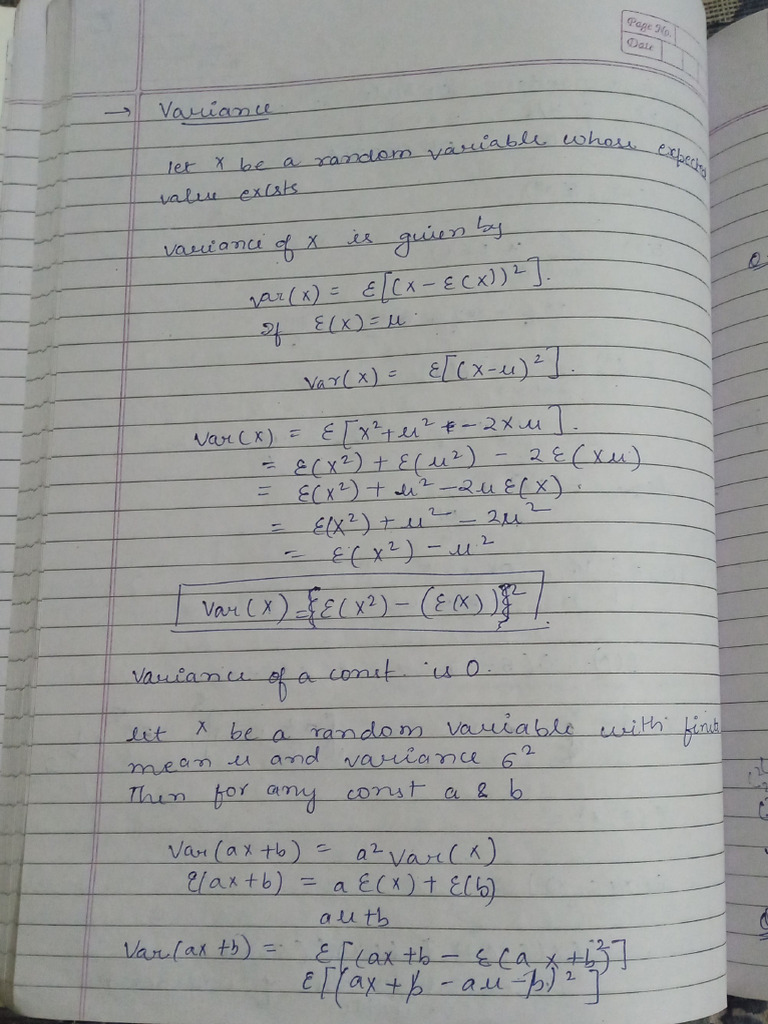 Page No.
Date
→ Variance
let X be a random variable whose expected
value exists
variance of X is given by
var(X) = E[(X - E(X))²].
If E(X) = μ.
Var(X) = E[(X-μ)²].
Var(X) = E[X² + μ² - 2Xμ].
= E(X²) + E(μ²) - 2E(Xμ)
= E(X²) + μ² - 2μE(X).
= E(X²) + μ² - 2μ²
= E(X²) - μ²
Var(X) = {E(X²) - (E(X))}²
Variance of a const. is 0.
let X be a random variable with finite
mean μ and variance σ²
Then for any const a & b
Var(aX+b) = a² Var(X)
E(aX+b) = a E(X) + E(b)
aμ+b
Var(aX+b) = E[(aX+b - E(aX+b)²]
E[(aX+b - aμ - b)²]